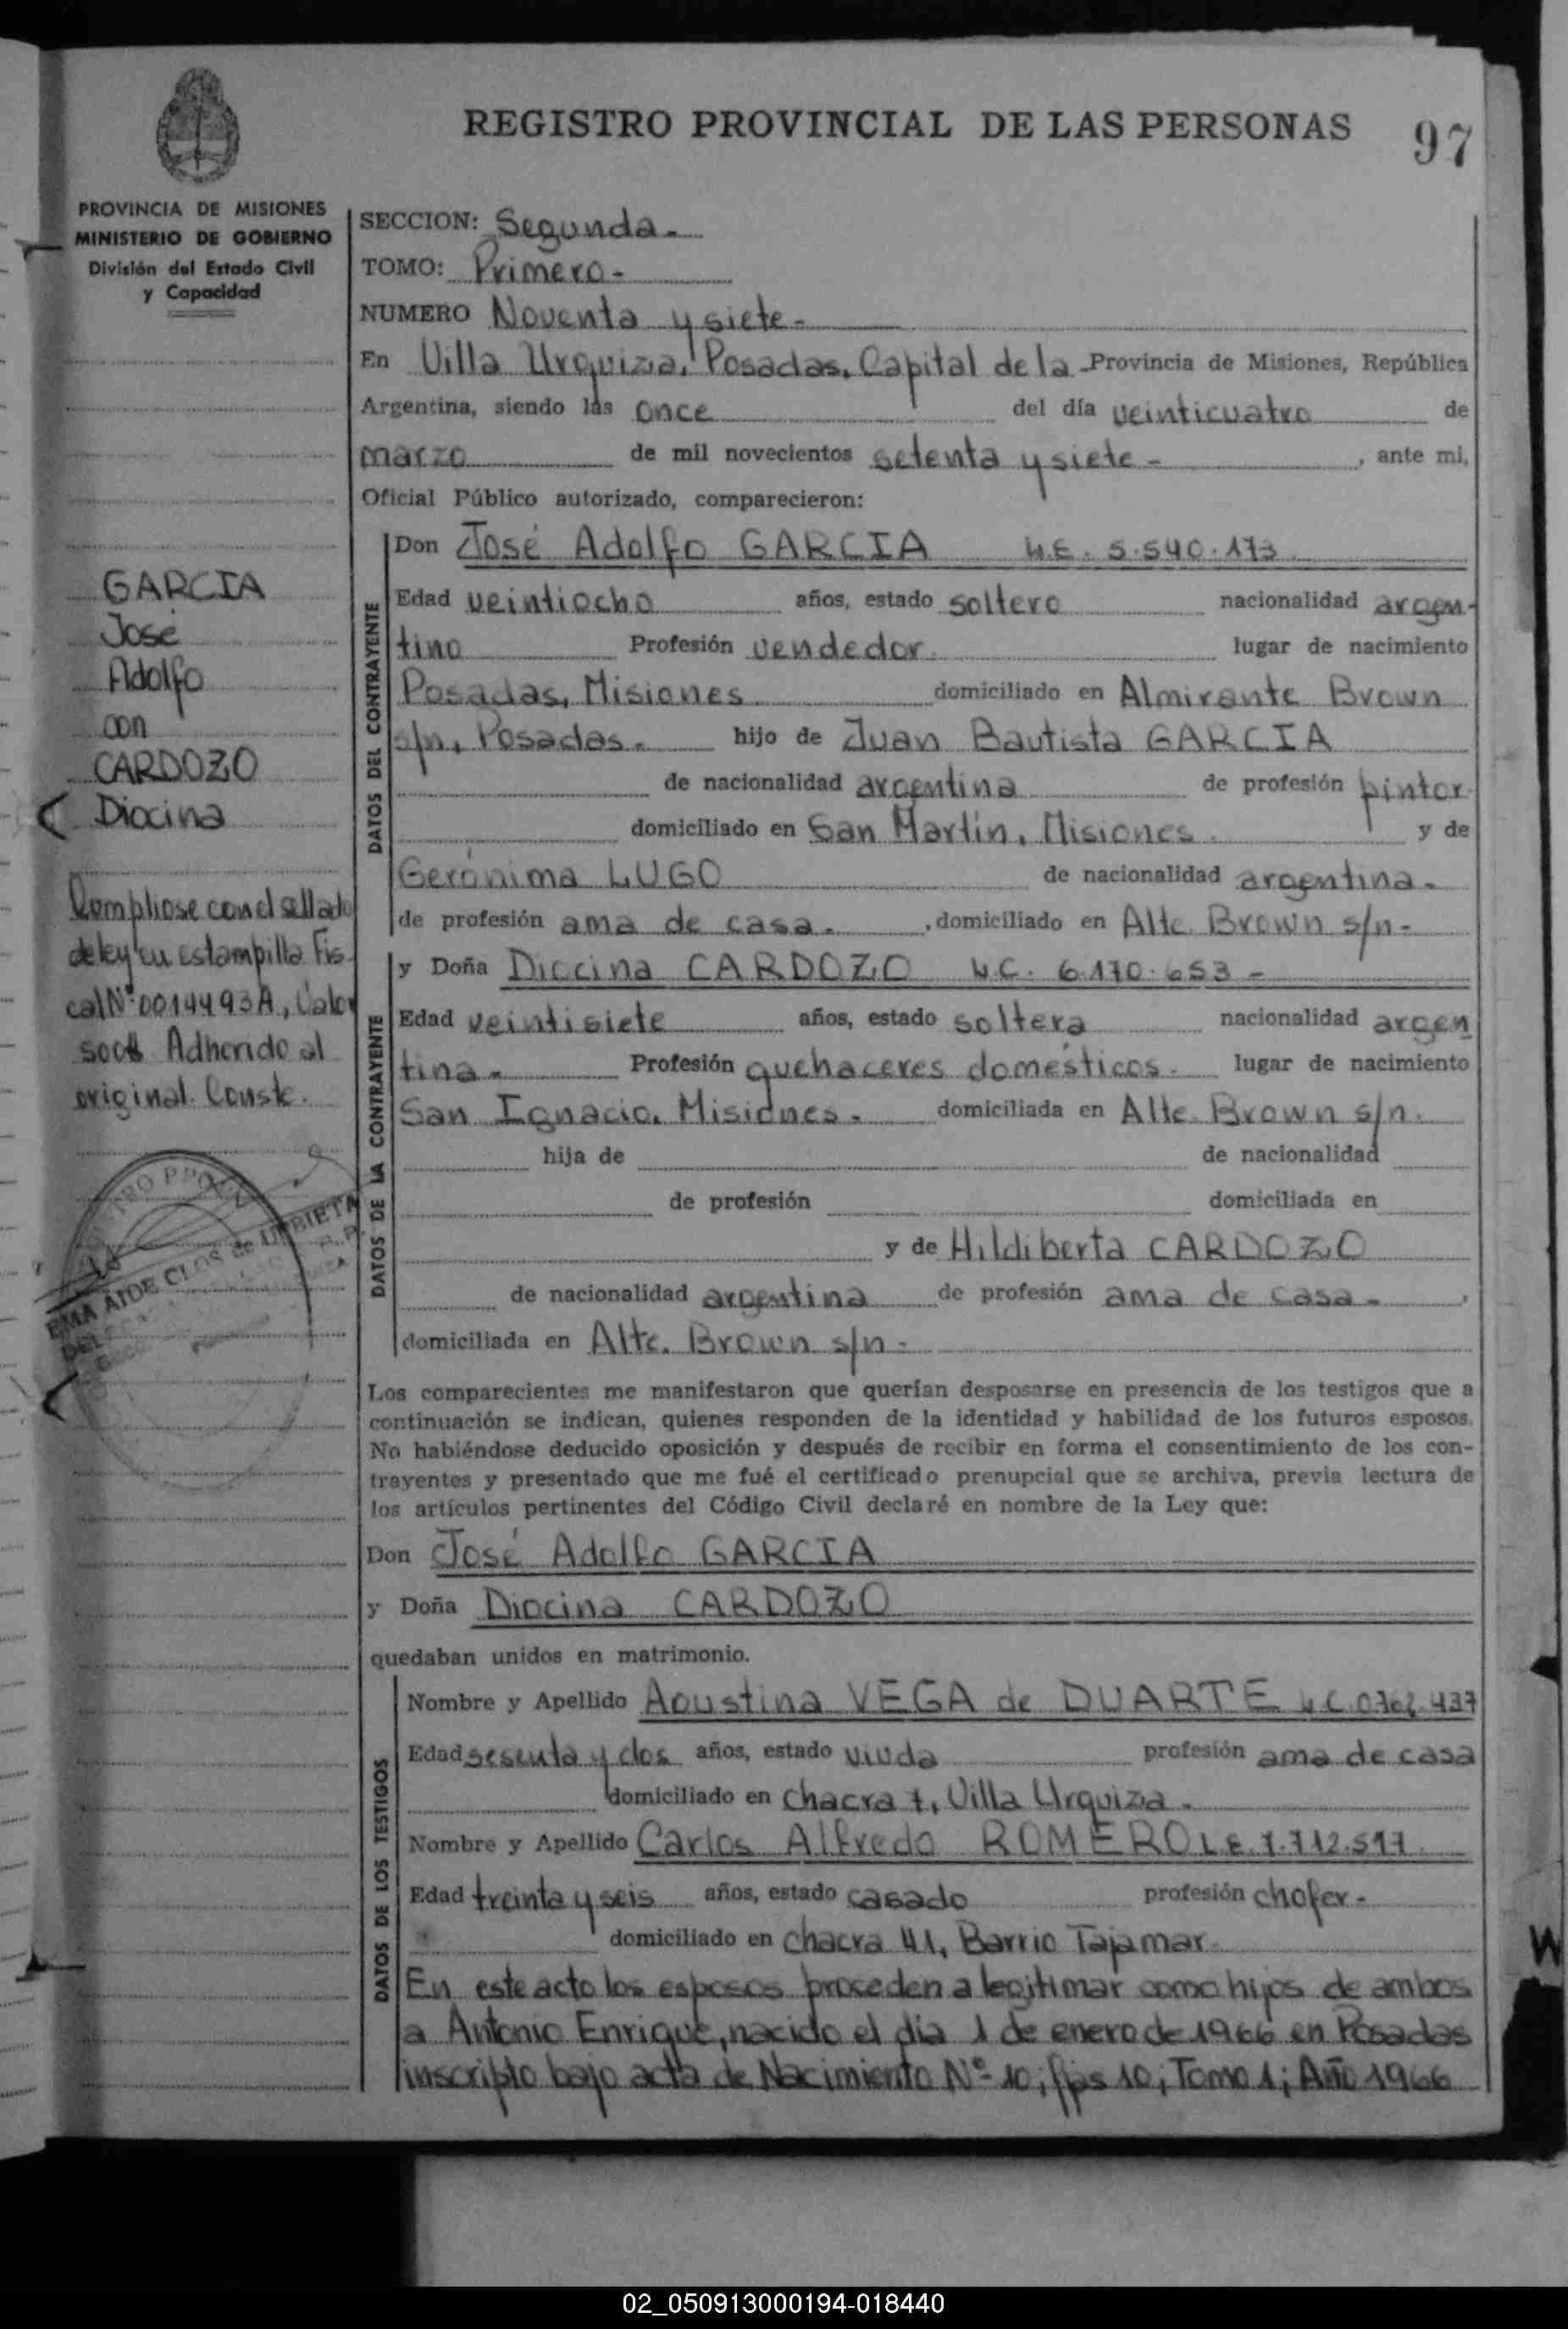 REGISTRO PROVINCIAL DE LAS PERSONAS
97
PROVINCIA DE MISIONES
MINISTERIO DE GOBIERNO
División del Estado Civil
y Capacidad
GARCIA
José
Adolfo
con
CARDOZO
Diocina
Cumpliose con el sellado
de ley en estampilla Fis
cal Nº 0014493A, Valor
500$ Adherido al
original. Conste.
EMA AIDE CLOS de URBIETA
SECCION: Segunda.
TOMO: Primero-
NUMERO Noventa y siete-
En Villa Urquiza, Posadas, Capital de la Provincia de Misiones, República
Argentina, siendo las once del día veinticuatro de
marzo de mil novecientos setenta y siete- , ante mi,
Oficial Público autorizado, comparecieron:
DATOS DEL CONTRAYENTE
Don José Adolfo GARCIA L.E. 5.540.173
Edad veintiocho años, estado soltero nacionalidad argen-
tino Profesión vendedor. lugar de nacimiento
Posadas, Misiones domiciliado en Almirante Brown
s/n, Posadas. hijo de Juan Bautista GARCIA
de nacionalidad argentina de profesión pintor
domiciliado en San Martín, Misiones. y de
Gerónima LUGO de nacionalidad argentina.
de profesión ama de casa. , domiciliado en Alte. Brown s/n-
DATOS DE LA CONTRAYENTE
y Doña Diocina CARDOZO L.C. 6.170.653-
Edad veintisiete años, estado soltera nacionalidad argen
tina- Profesión quehaceres domésticos. lugar de nacimiento
San Ignacio, Misiones. domiciliada en Alte. Brown s/n.
hija de de nacionalidad
de profesión domiciliada en
y de Hildiberta CARDOZO
de nacionalidad argentina de profesión ama de casa- ,
domiciliada en Alte. Brown s/n-
Los comparecientes me manifestaron que querían desposarse en presencia de los testigos que a
continuación se indican, quienes responden de la identidad y habilidad de los futuros esposos.
No habiéndose deducido oposición y después de recibir en forma el consentimiento de los con-
trayentes y presentado que me fué el certificado prenupcial que se archiva, previa lectura de
los artículos pertinentes del Código Civil declaré en nombre de la Ley que:
Don José Adolfo GARCIA
y Doña Diocina CARDOZO
quedaban unidos en matrimonio.
DATOS DE LOS TESTIGOS
Nombre y Apellido Agustina VEGA de DUARTE L.C. 437
Edad sesenta y dos años, estado viuda profesión ama de casa
domiciliado en chacra 1, Villa Urquiza.
Nombre y Apellido Carlos Alfredo ROMERO L.E. 7.712.517
Edad treinta y seis años, estado casado profesión chofer-
domiciliado en chacra 41, Barrio Tajamar.
En este acto los esposos proceden a legitimar como hijos de ambos
a Antonio Enrique, nacido el día 1 de enero de 1966 en Posadas
inscripto bajo acta de Nacimiento Nº 10; fjs 10; Tomo 1; Año 1966
02_050913000194-018440